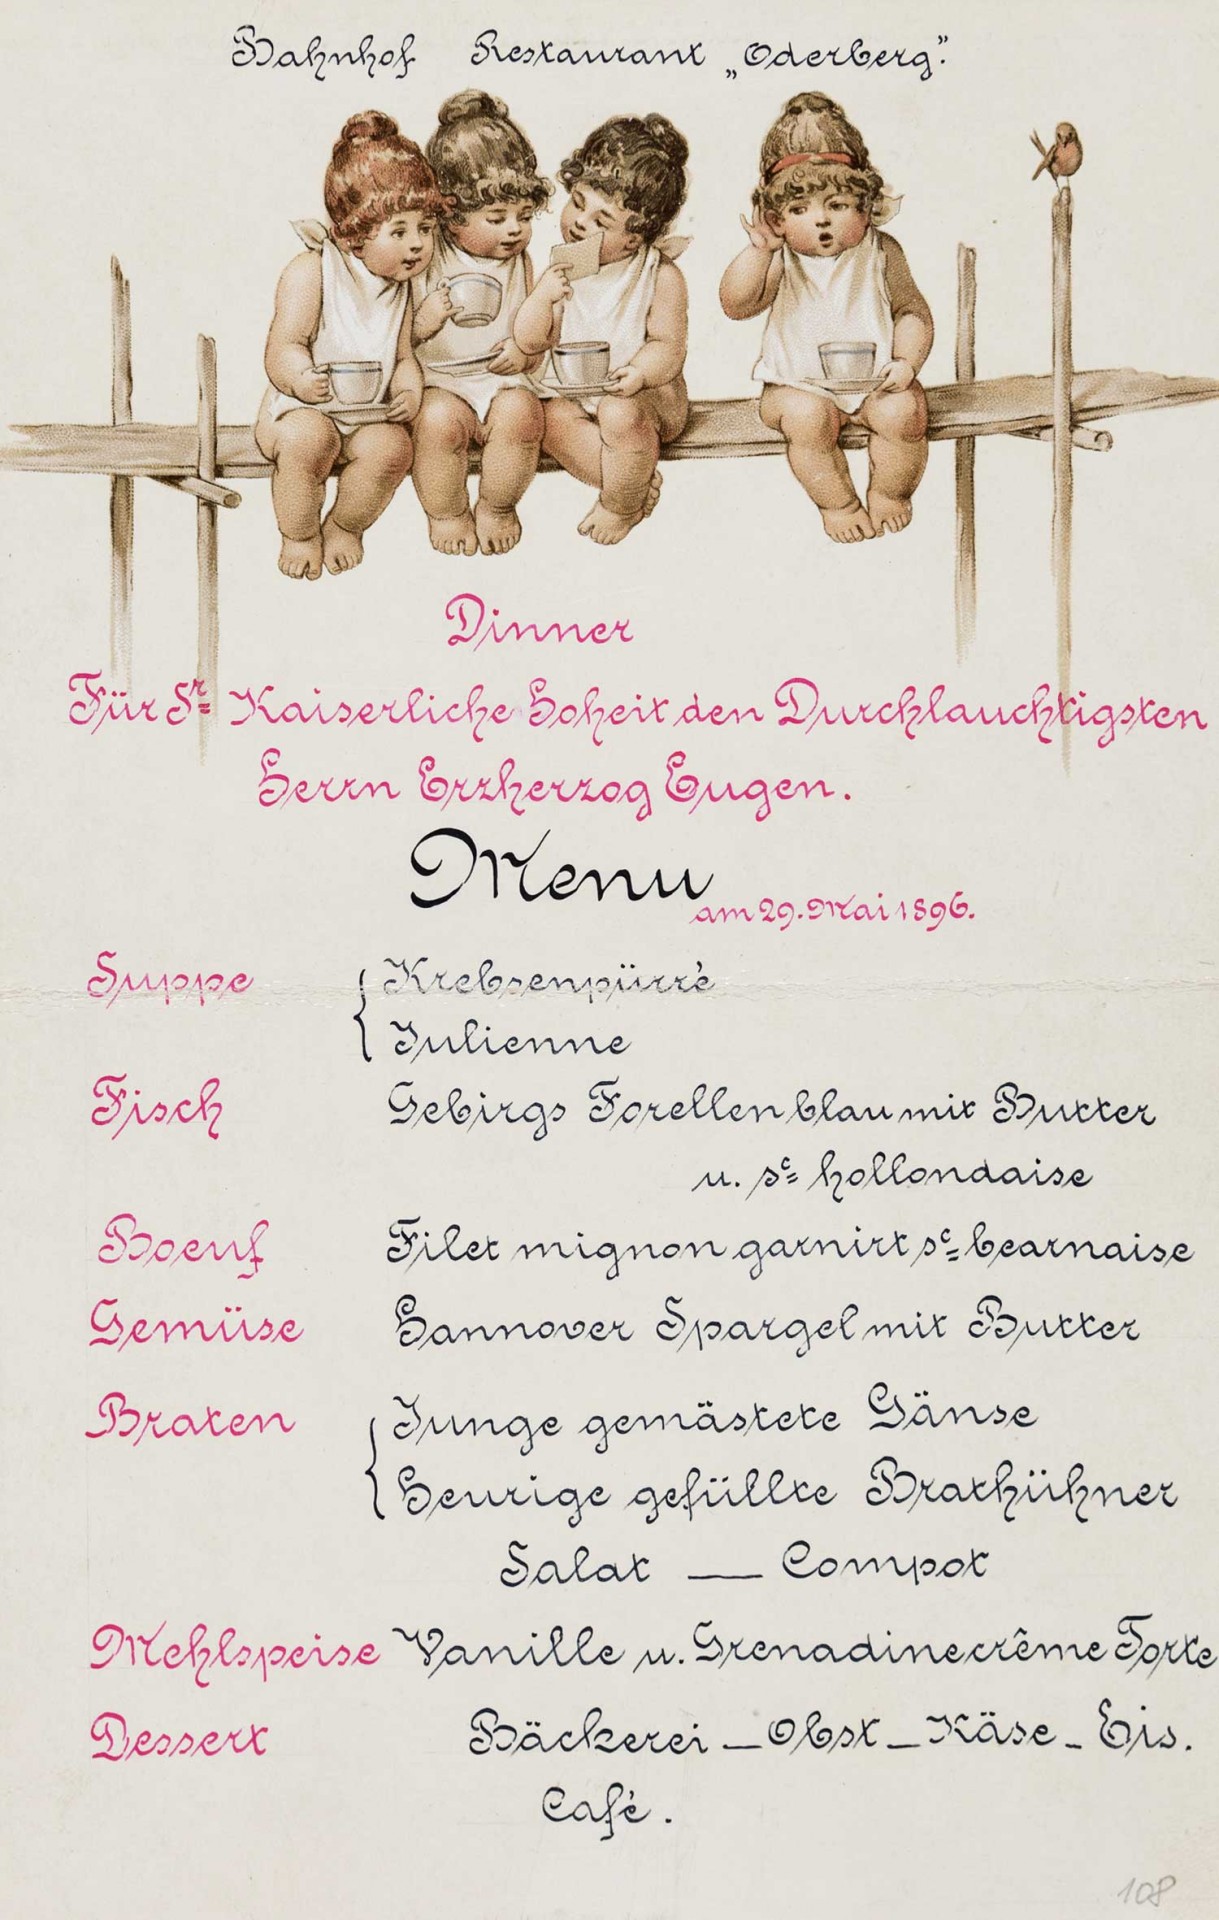 Bahnhof Restaurant „Oderberg."
Dinner
Für Sr= Kaiserliche Hoheit den Durchlauchtigsten
Herrn Erzherzog Eugen.
Menu
am 29. Mai 1896.
Suppe { Krebsenpürré
Julienne
Fisch Gebirgs Forellen blau mit Butter
u. sc= hollondaise
Boeuf Filet mignon garnirt sc= bearnaise
Gemüse Hannover Spargel mit Butter
Braten { Junge gemästete Gänse
Heurige gefüllte Brathühner
Salat — Compot
Mehlspeise Vanille u. Grenadinecrême Torte
Dessert Bäckerei — Obst — Käse - Eis.
Café.
108